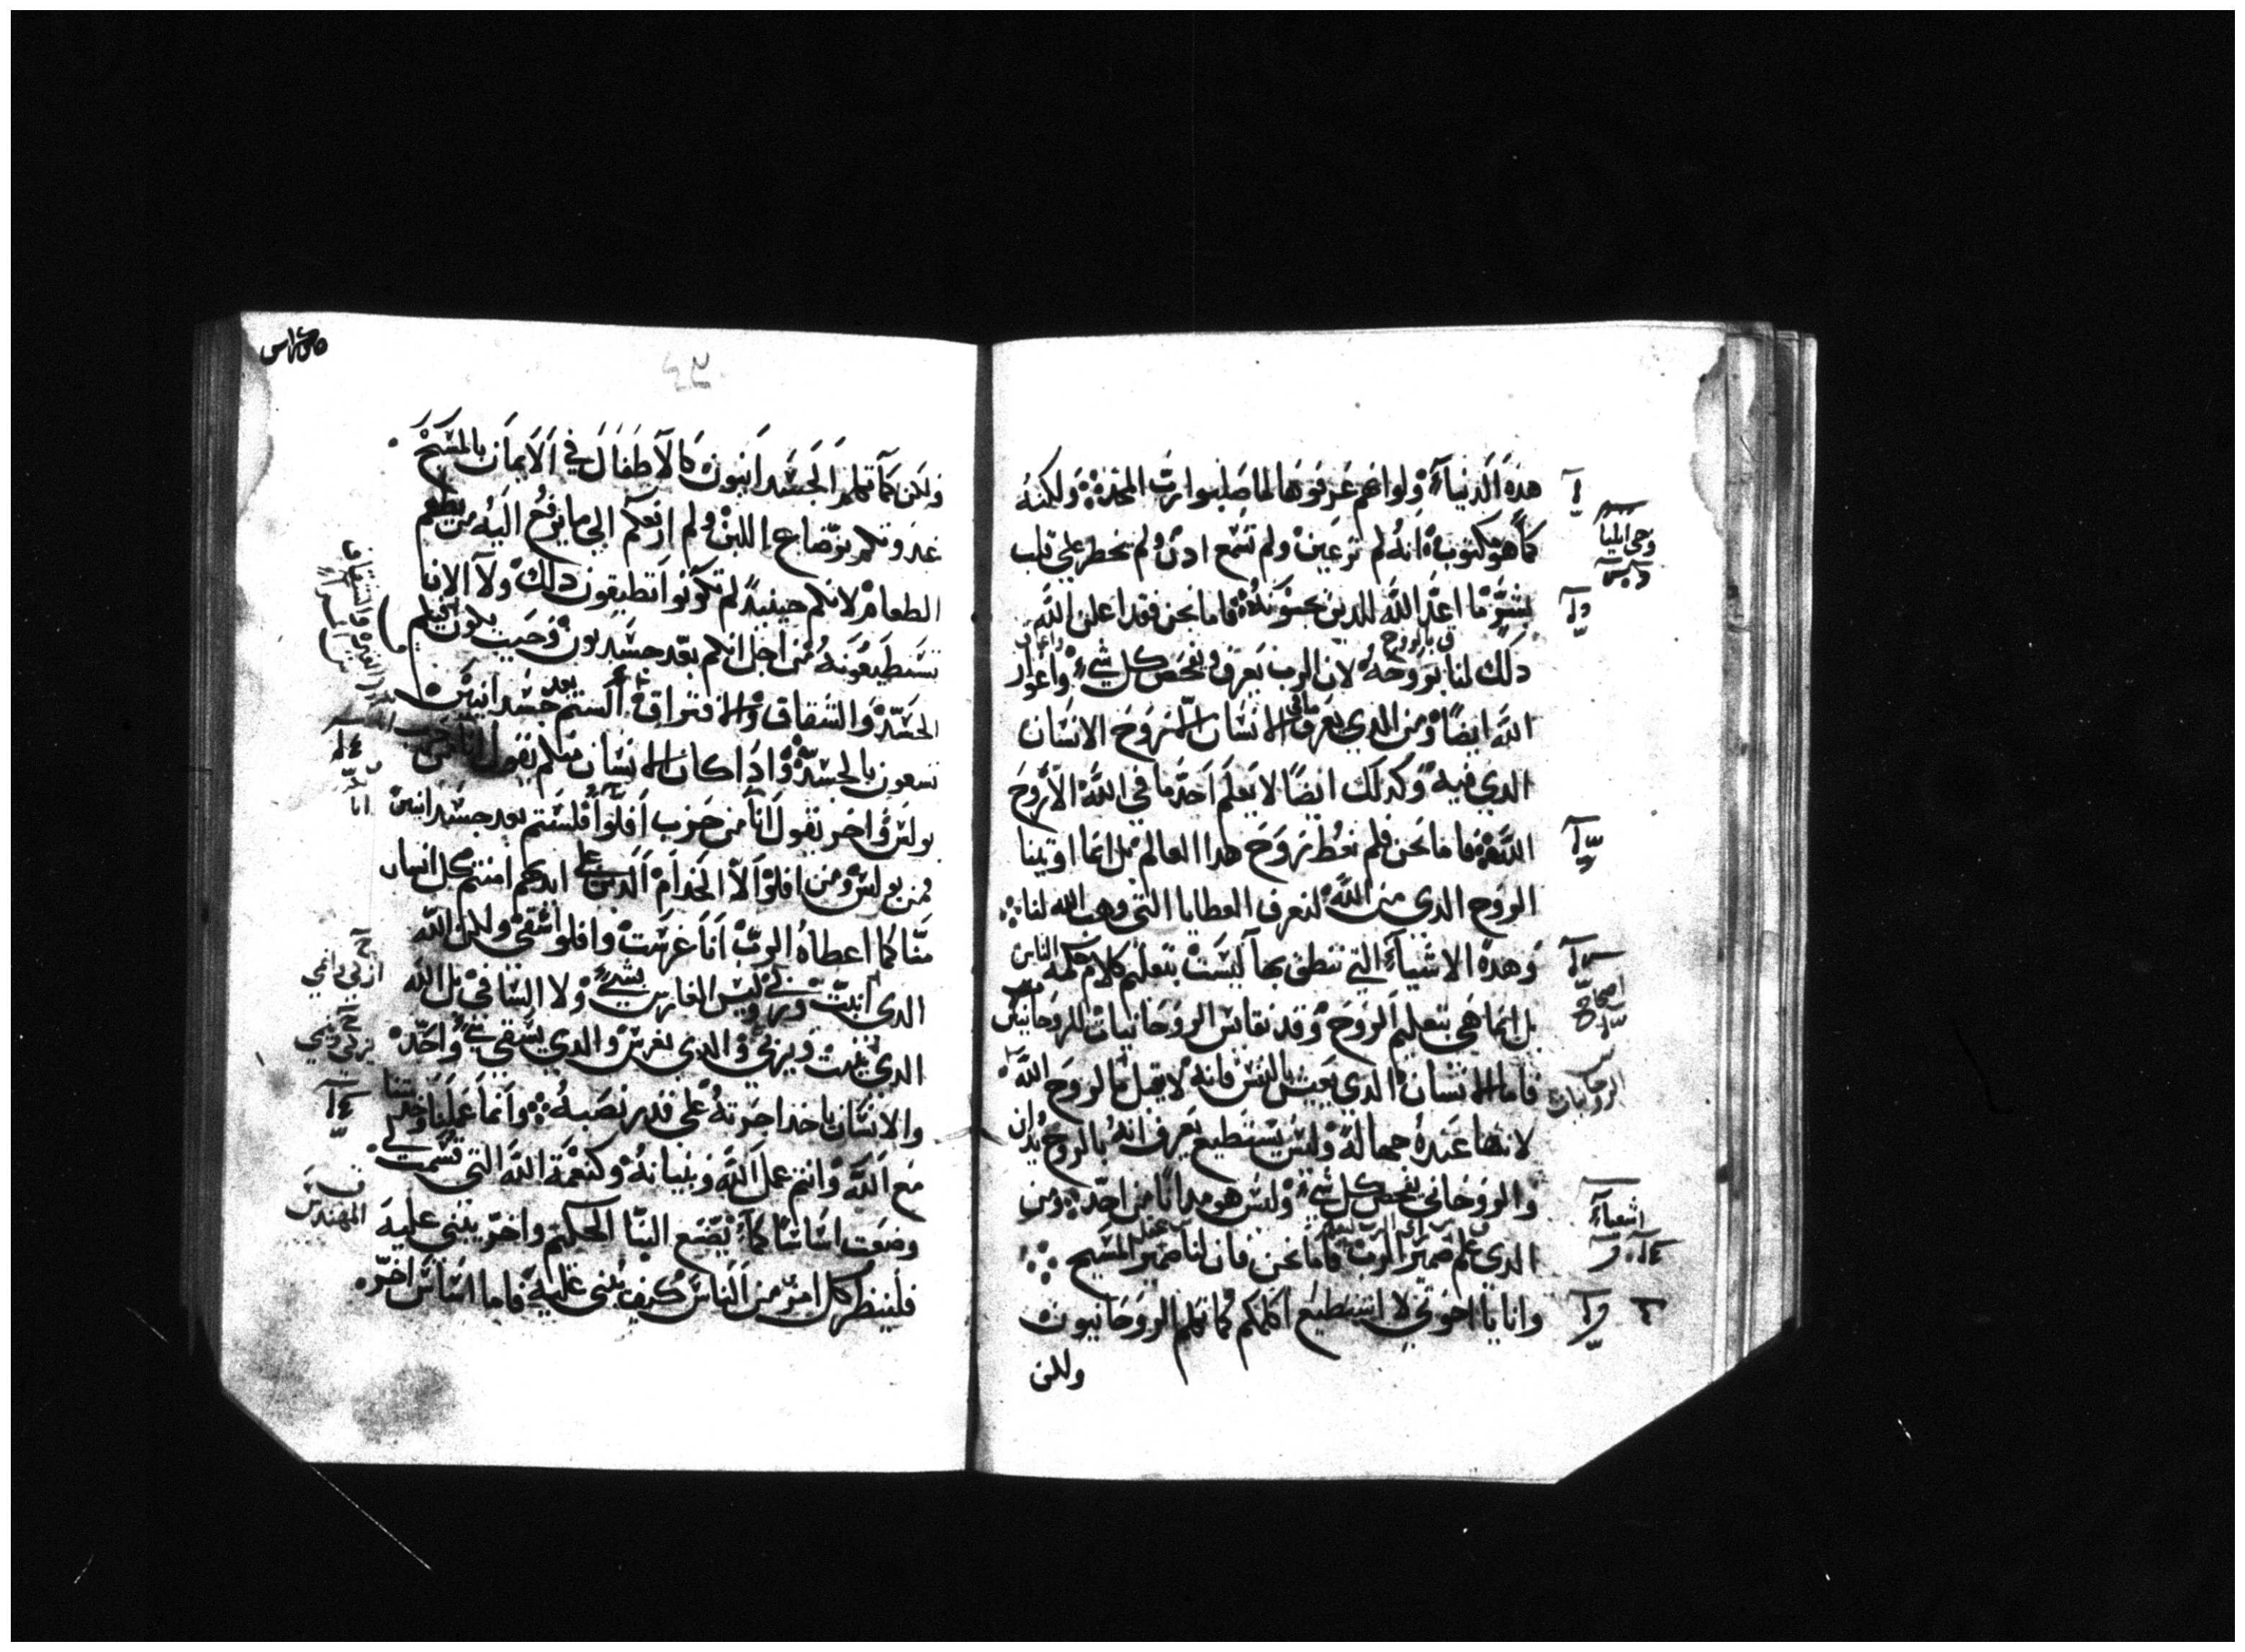 هذه الدنياء ولو انهم عرفوها لما صلبوا رب المجد ولكنه
كما هو مكتوب انه لم تر عين ولم تسمع ادن ولم يخطر على قلب
بشر ما اعد الله للدين يحبونه فاما نحن فقد اعلن الله
دلك لنا بروحه لان الروح يعرف ويفحص كل شي واغوار
الله ايضا ومن الدي يعرف ما في الانسان الا روح الانسان
الدي فيه وكدلك ايضا لا يعلم احد ما في الله الا روح
الله فاما نحن فلم نعط روح هدا العالم بل انما اوتينا
الروح الدي من الله لنعرف العطايا التي وهب الله لنا
وهده الاشياء التي ننطق بها ليست بتعليم كلام حكمة الناس
بل انما هي بتعليم الروح وقد نقايس الروحانيات للروحانيين
فاما الانسان الدي يعيش بالنفس فانه لا يقبل ما لروح الله
لانها عنده جهاله وليس يستطيع يعرف انه بالروح يدان
والروحاني يفحص كل شي وليس هو مدانا من احد ومن
الدي علم ضمير الرب فاما نحن فان لنا ضمير المسيح
وانا يا اخوتي لا استطيع اكلمكم كما نكلم الروحانيون
ولكن
وحي ايليا
اصحاح
الروحانيات
اشعياء
ولكن كما نكلم الجسدانيون كالاطفال في الايمان بالمسيح
غدوتكم برضاع اللبن ولم ارفعكم الي ما يرفع اليه من يطعم
الطعام لانكم حينيد لم تكونوا تطيقون دلك ولا الان
تستطيعونه من اجل انكم بعد جسديون وحيت يكون فيكم
الحسد والشقاق والافتراق الستم بعد جسدانيين
تسعون بالجسد وادا كان الانسان منكم يقول انا من حزب
بولس واخر يقول انا من حزب افلوا فلستم بعد جسدانيين
فمن بولس ومن افلوا الا الخدام الدين على ايديهم امنتم كل انسان
منا كما اعطاه الرب انا غرست وافلوا سقى ولكن الله
الدي انبت وربي ليس الغارس بشي ولا الساقي بل الله
الدي ينبت ويربي والدي يغرس والدي يسقي شي واحد
والانسان ياخد اجرته على قدر نصبه وانما عملنا
مع الله وانتم عمل الله وبنيانه وكنعمة الله التي قسمت لي
وضعت اساسا كما يصنع البنا الحكيم واخر يبني عليه
فلينظر كل امر من الناس كيف يبني عليه فاما اساس اخر
المهندس